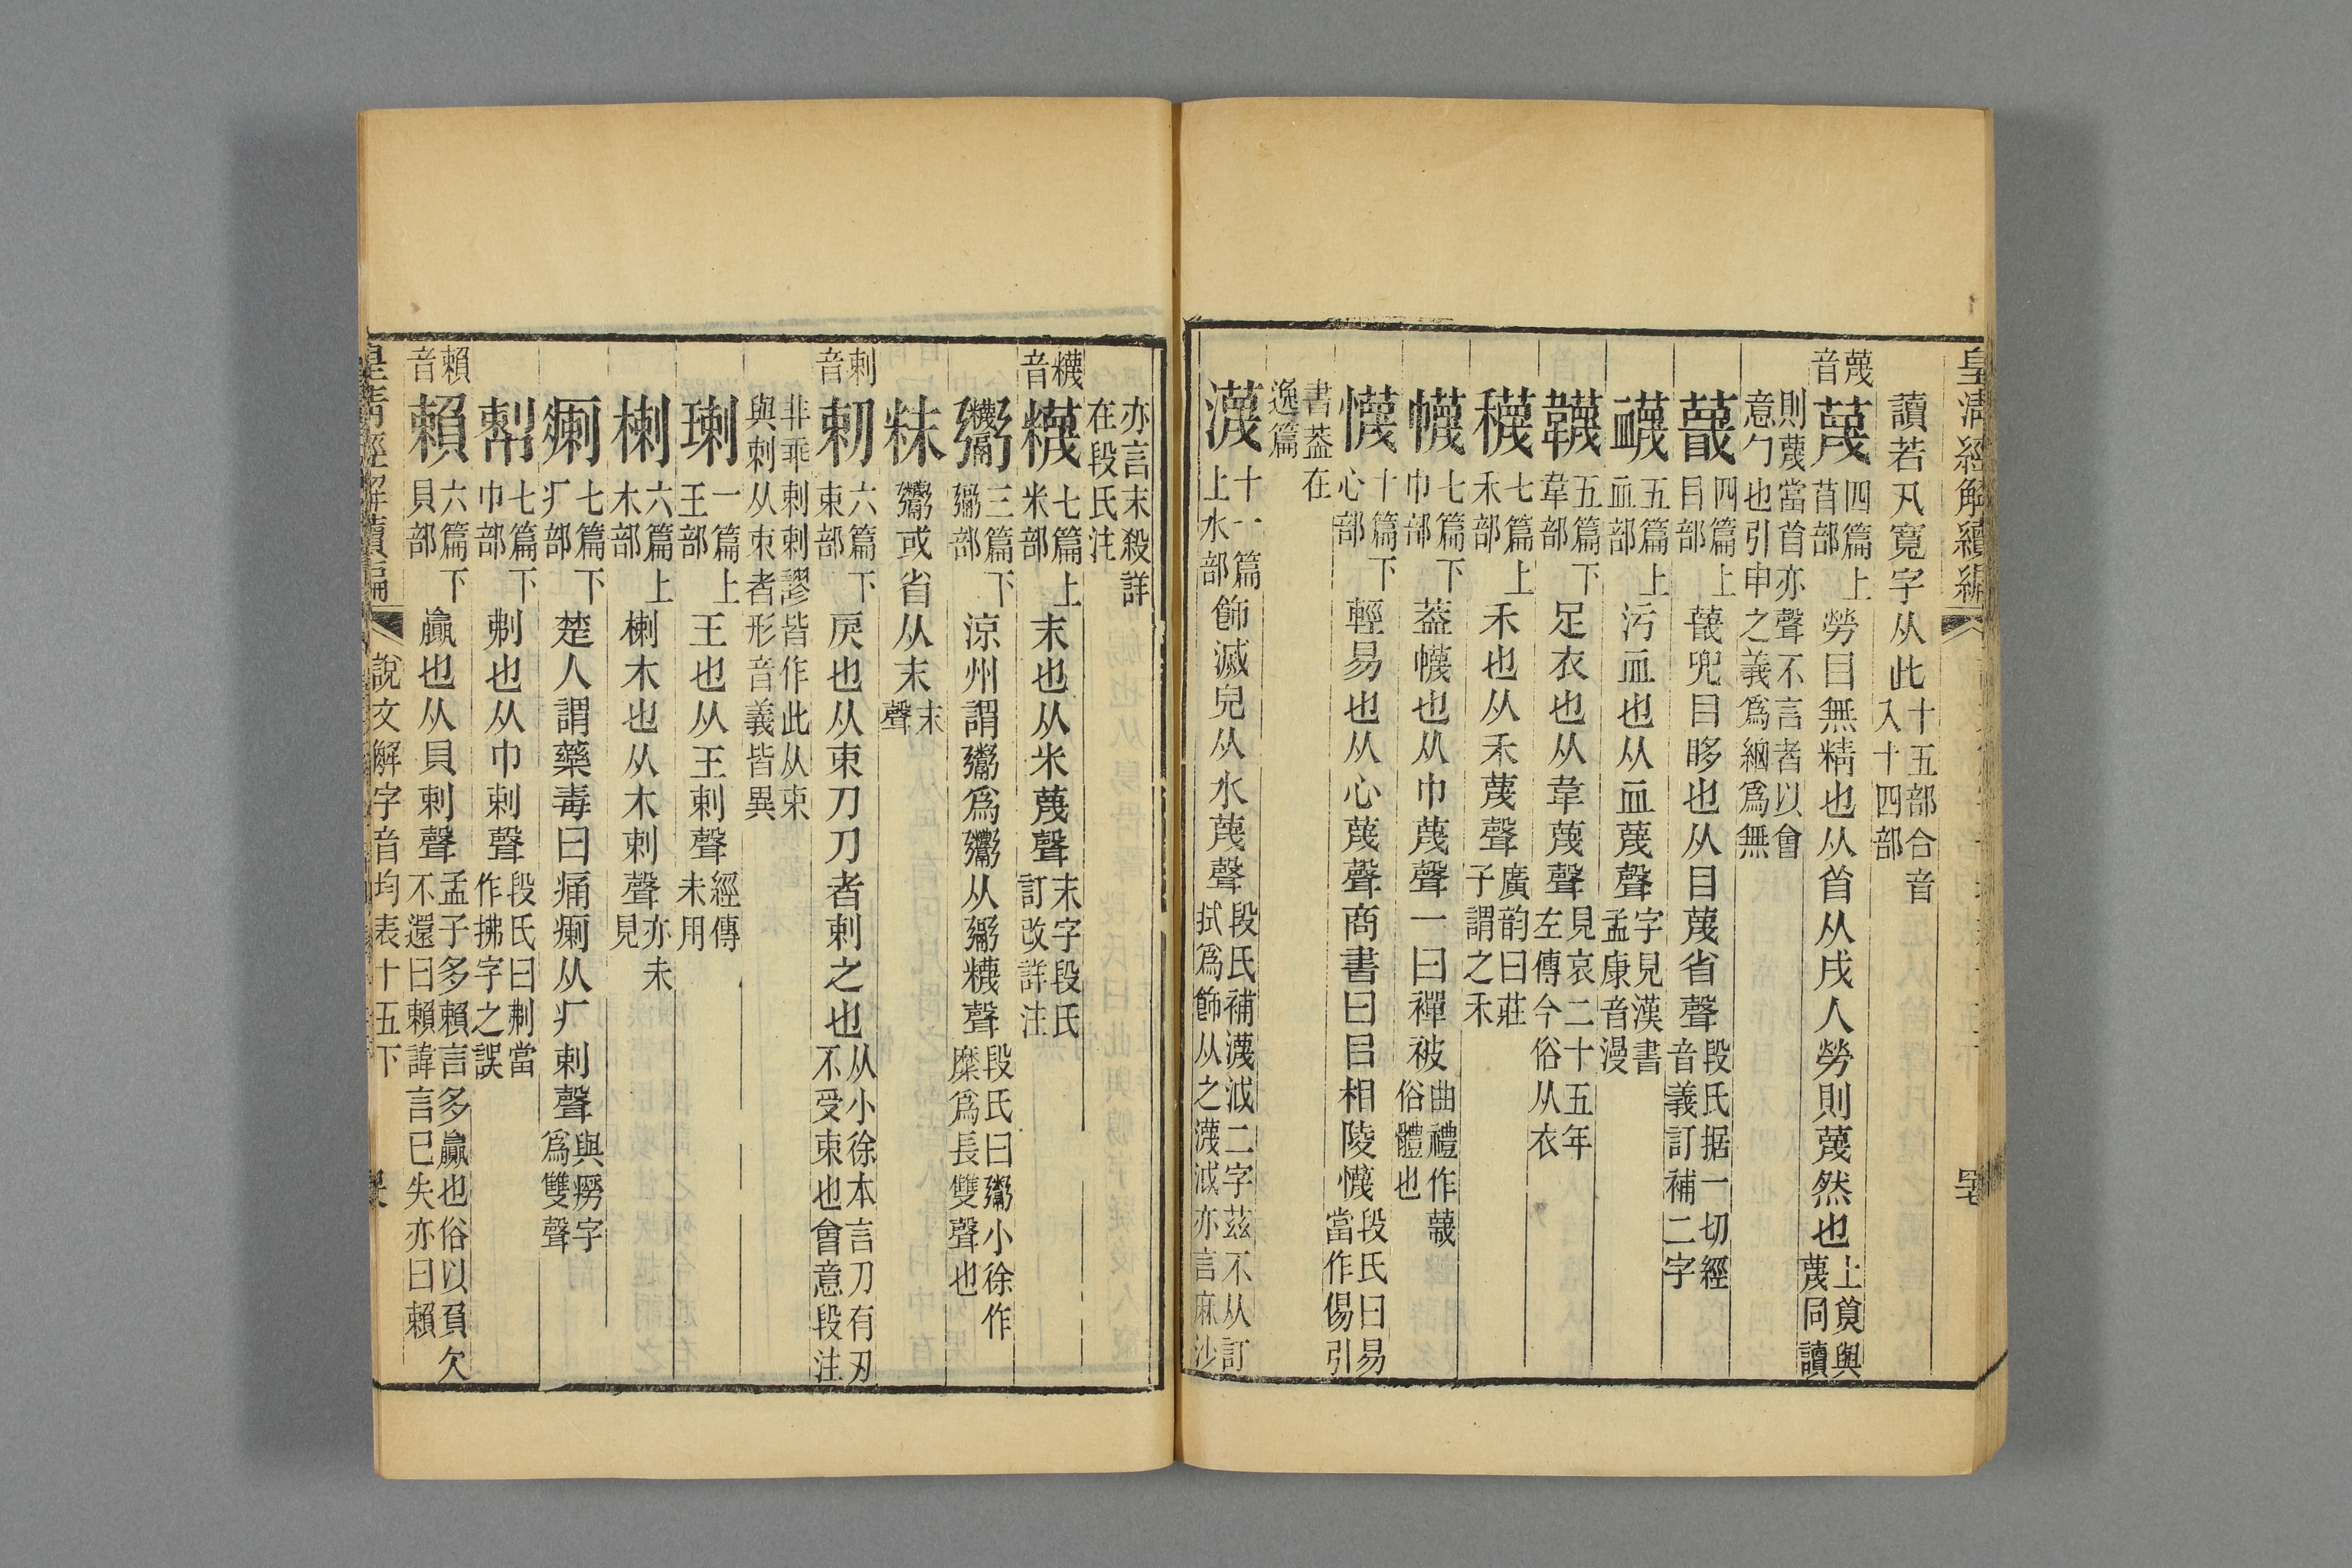 皇清經解續編
讀若丮寬字从此十五部合音入十四部
蔑音
蔑四篇上苜部勞目無精也从苜从戌人勞則蔑然也上莧與蔑同讀
則蔑當苜亦聲不言者以會意勹也引申之義爲細爲無
瞢四篇上目部兜目眵也从目蔑省聲段氏据一切經音義訂補二字
衊五篇上血部汚血也从血蔑聲字見漢書孟康音漫
韤五篇下韋部足衣也从韋蔑聲見哀二十五年左傳今俗从衣
穖七篇上禾部禾也从禾蔑聲廣韵曰莊子謂之禾
幭七篇下巾部蓋幭也从巾蔑聲一曰襌被曲禮作幭俗體也
懱十篇下心部輕易也从心蔑聲商書曰㠯相陵懱段氏曰易當作傷引
書蓋在逸篇
瀎十一篇上水部飾滅皃从水蔑聲段氏補瀎泧二字茲不从訂拭爲飾从之瀎泧亦言麻沙
亦言末殺詳在段氏注
䊳音
䊳七篇上米部末也从米蔑聲末字段氏訂改詳注
三篇下部涼州謂鬻爲从䊳聲段氏曰鬻小徐作糜爲長雙聲也
粖或省从末末聲
剌音
剌六篇下束部戾也从束刀刀者剌之也从小徐本言刀有刃不受束也會意段注
非乖剌剌謬皆作此从束與刺从朿者形音義皆異
瑓一篇上王部王也从王剌聲經傳未用
楋六篇上木部楋木也从木剌聲亦未見
瘌七篇下疒部楚人謂藥毒曰痛瘌从疒剌聲與癆字爲雙聲
七篇下巾部也从巾剌聲段氏曰當作拂字之誤
賴音
賴六篇下貝部贏也从貝剌聲孟子多賴言多贏也俗以負欠不還曰賴諱言已失亦曰賴
皇清經解續編
說文解字音均表十五下